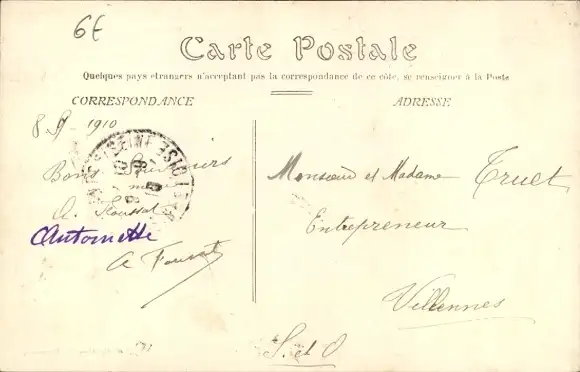 6€
Carte Postale
Quelques pays etrangers n'acceptant pas la correspondance de ce côté, se renseigner à la Poste
CORRESPONDANCE
ADRESSE
1910
Bons Souvenirs
A.
Antoinette
A
Monsieur et Madame Truet
Entrepreneur
Villennes
S. et O